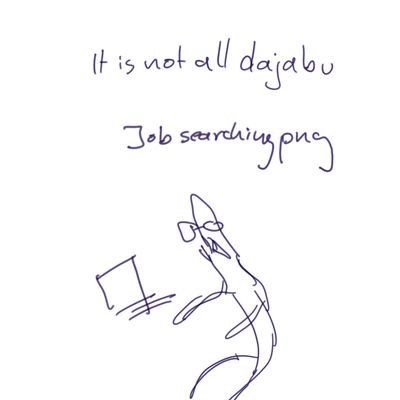 It is not all dajabu
Job searching png